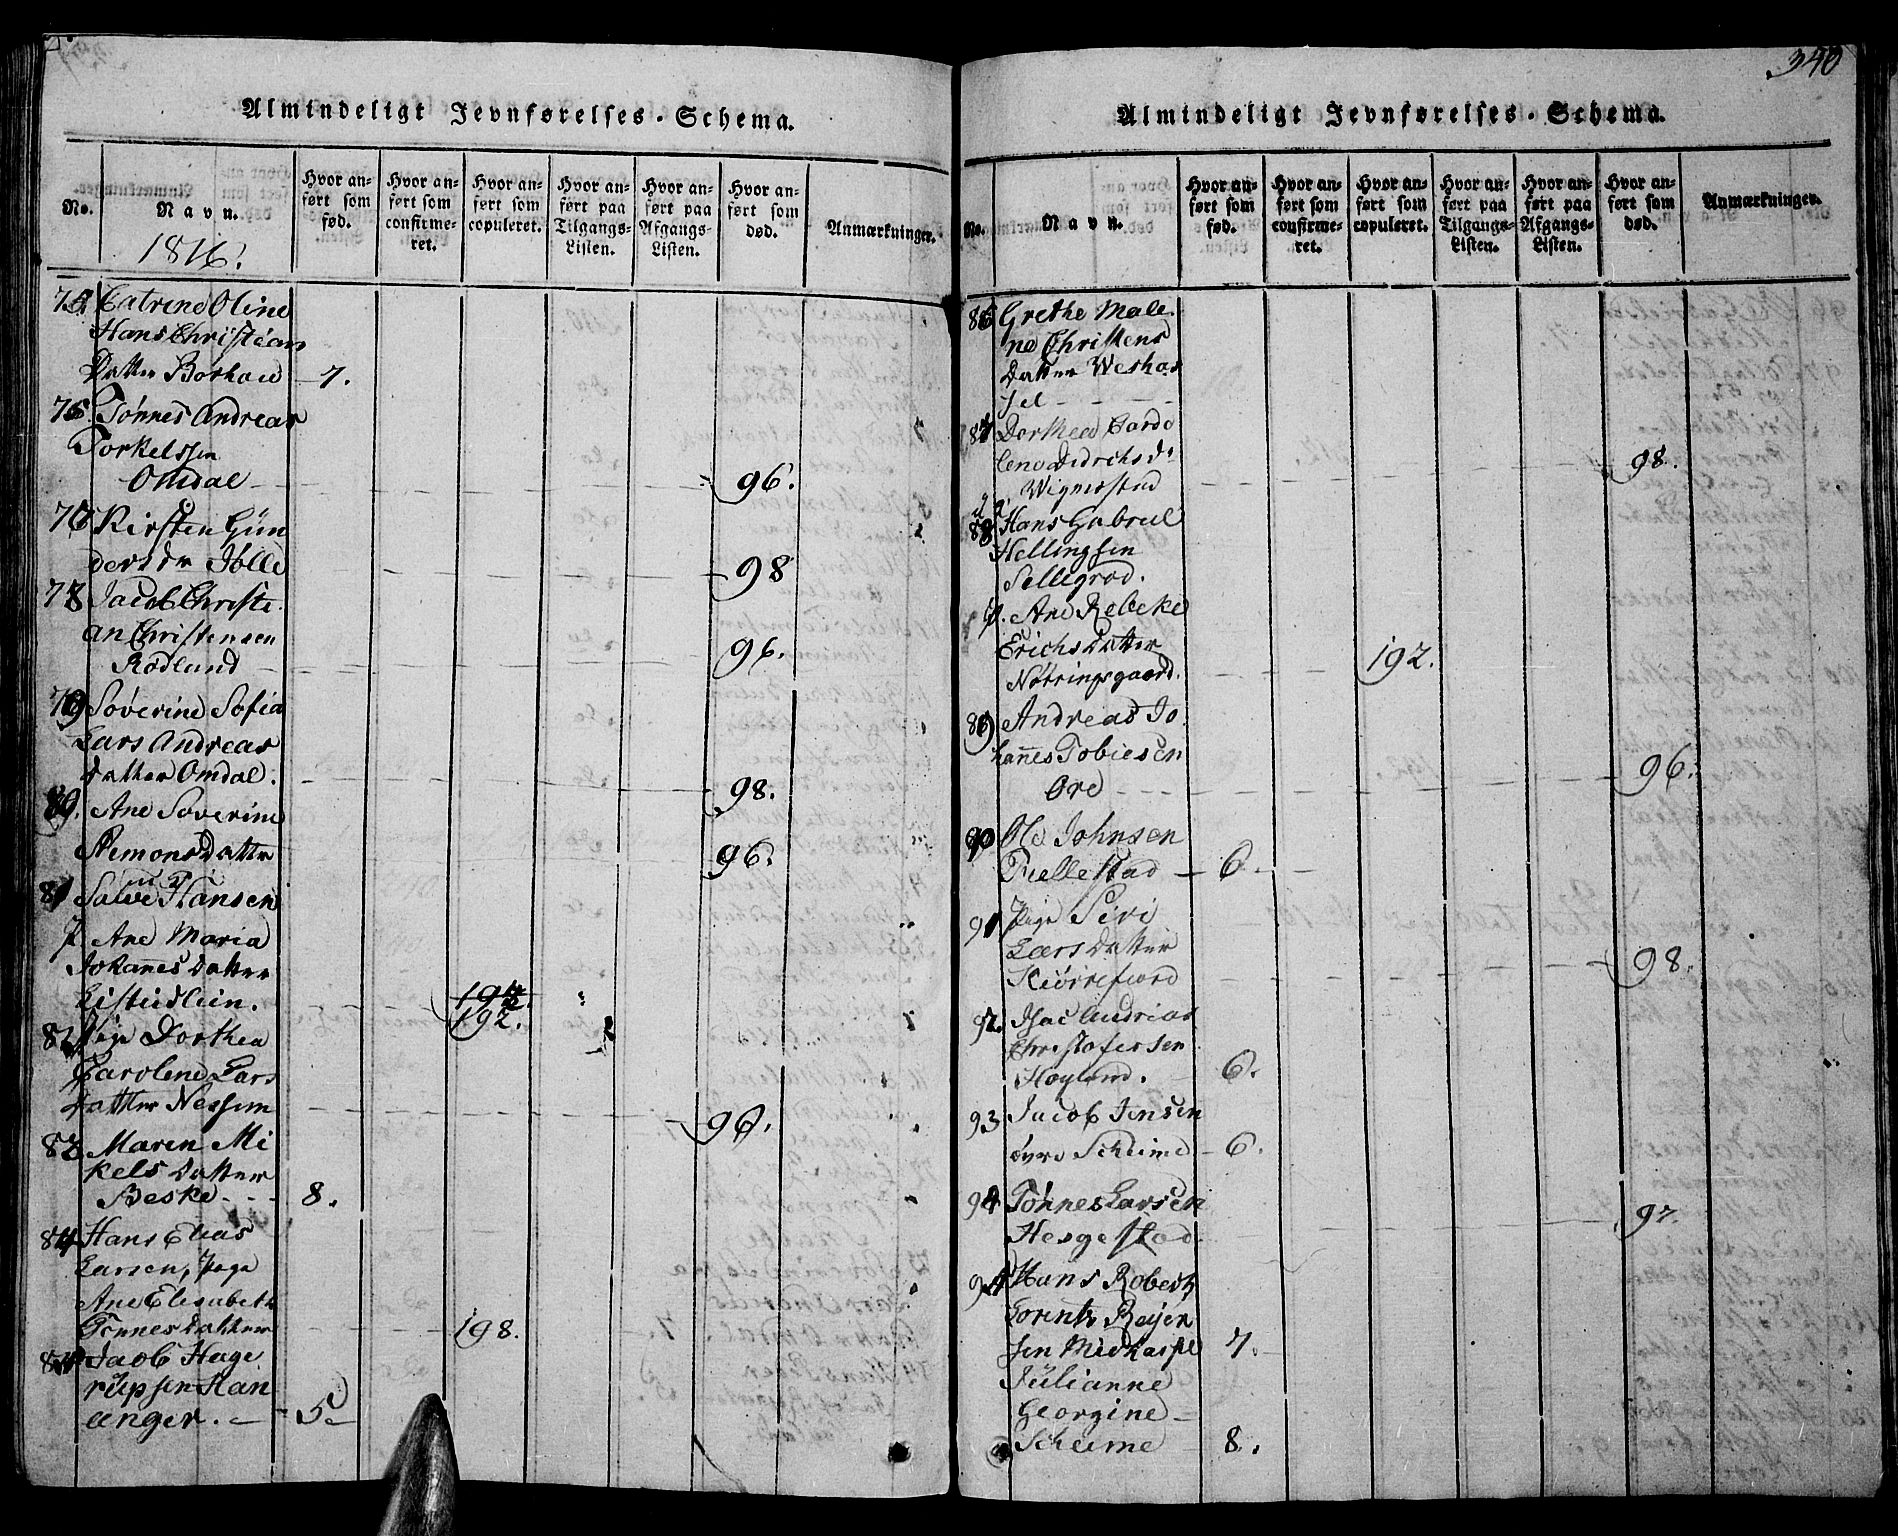 340
Almindeligt Jevnførelses-Schema.
No.
Navn.
1816.
Hvor anført som fød.
Hvor anført som confirmeret.
Hvor anført som copuleret.
Hvor anført paa Tilgangs-Listen.
Hvor anført paa Afgangs-Listen.
Hvor anført som død.
Anmærkninger.
Catrine Oline
Hans Christians
Datter Borhou 7.
Tønnes Andreas
Torkelssen
Omdal 96.
Kirsten Gun
dersdr Jølle 98
Jacob Christi
an Christensen
Rødland 96.
79 Søverine Sofia
Lars Andreas
Datter Omdal. 98.
Ane Soverine
Datter 96.
81 Salve Hansen
p Ane Maria
Johannes Datter
192.
Pige Dorthea
Carolene Lars
Datter Nessem 96.
Maren Mi
kels Datter
Beske 8.
84 Hans Elias
Larsen, Pige
Ane Elisabeth
Tønnes Datter 198.
Jacob Hage
rupsen Han
anger. 5
Almindeligt Jevnførelses-Schema.
No.
Navn.
Hvor anført som fød.
Hvor anført som confirmeret.
Hvor anført som copuleret.
Hvor anført paa Tilgangs-Listen.
Hvor anført paa Afgangs-Listen.
Hvor anført som død.
Anmærkninger.
86 Grethe Male
ne Christens
Datter Weshas
sel
87 Dorthea Caro
lena Didrichs dr 98.
Wignestad
88 Hans Gabriel
Hellingsen
Sellegrod.
p. Ane Rebeke
Erichs Datter 192.
Nøtringsgaard.
89 Andreas Jo
hannes Tobiesen 96.
Øre
90 Ole Johnsen
Tiellestad 6.
91 Pige Siri
Lars Datter 98.
Kiørrefiord
92. Isac Andrias
Christofersen
Høyland. 6.
93 Jacob Jensen
øvre Scheime 6.
94 Tønnes Larsen 97.
Hesgestad
Hans Robert
Lorentz Reyer
sen Midhasel 7.
Julianne
Georgine
Scheime 8.